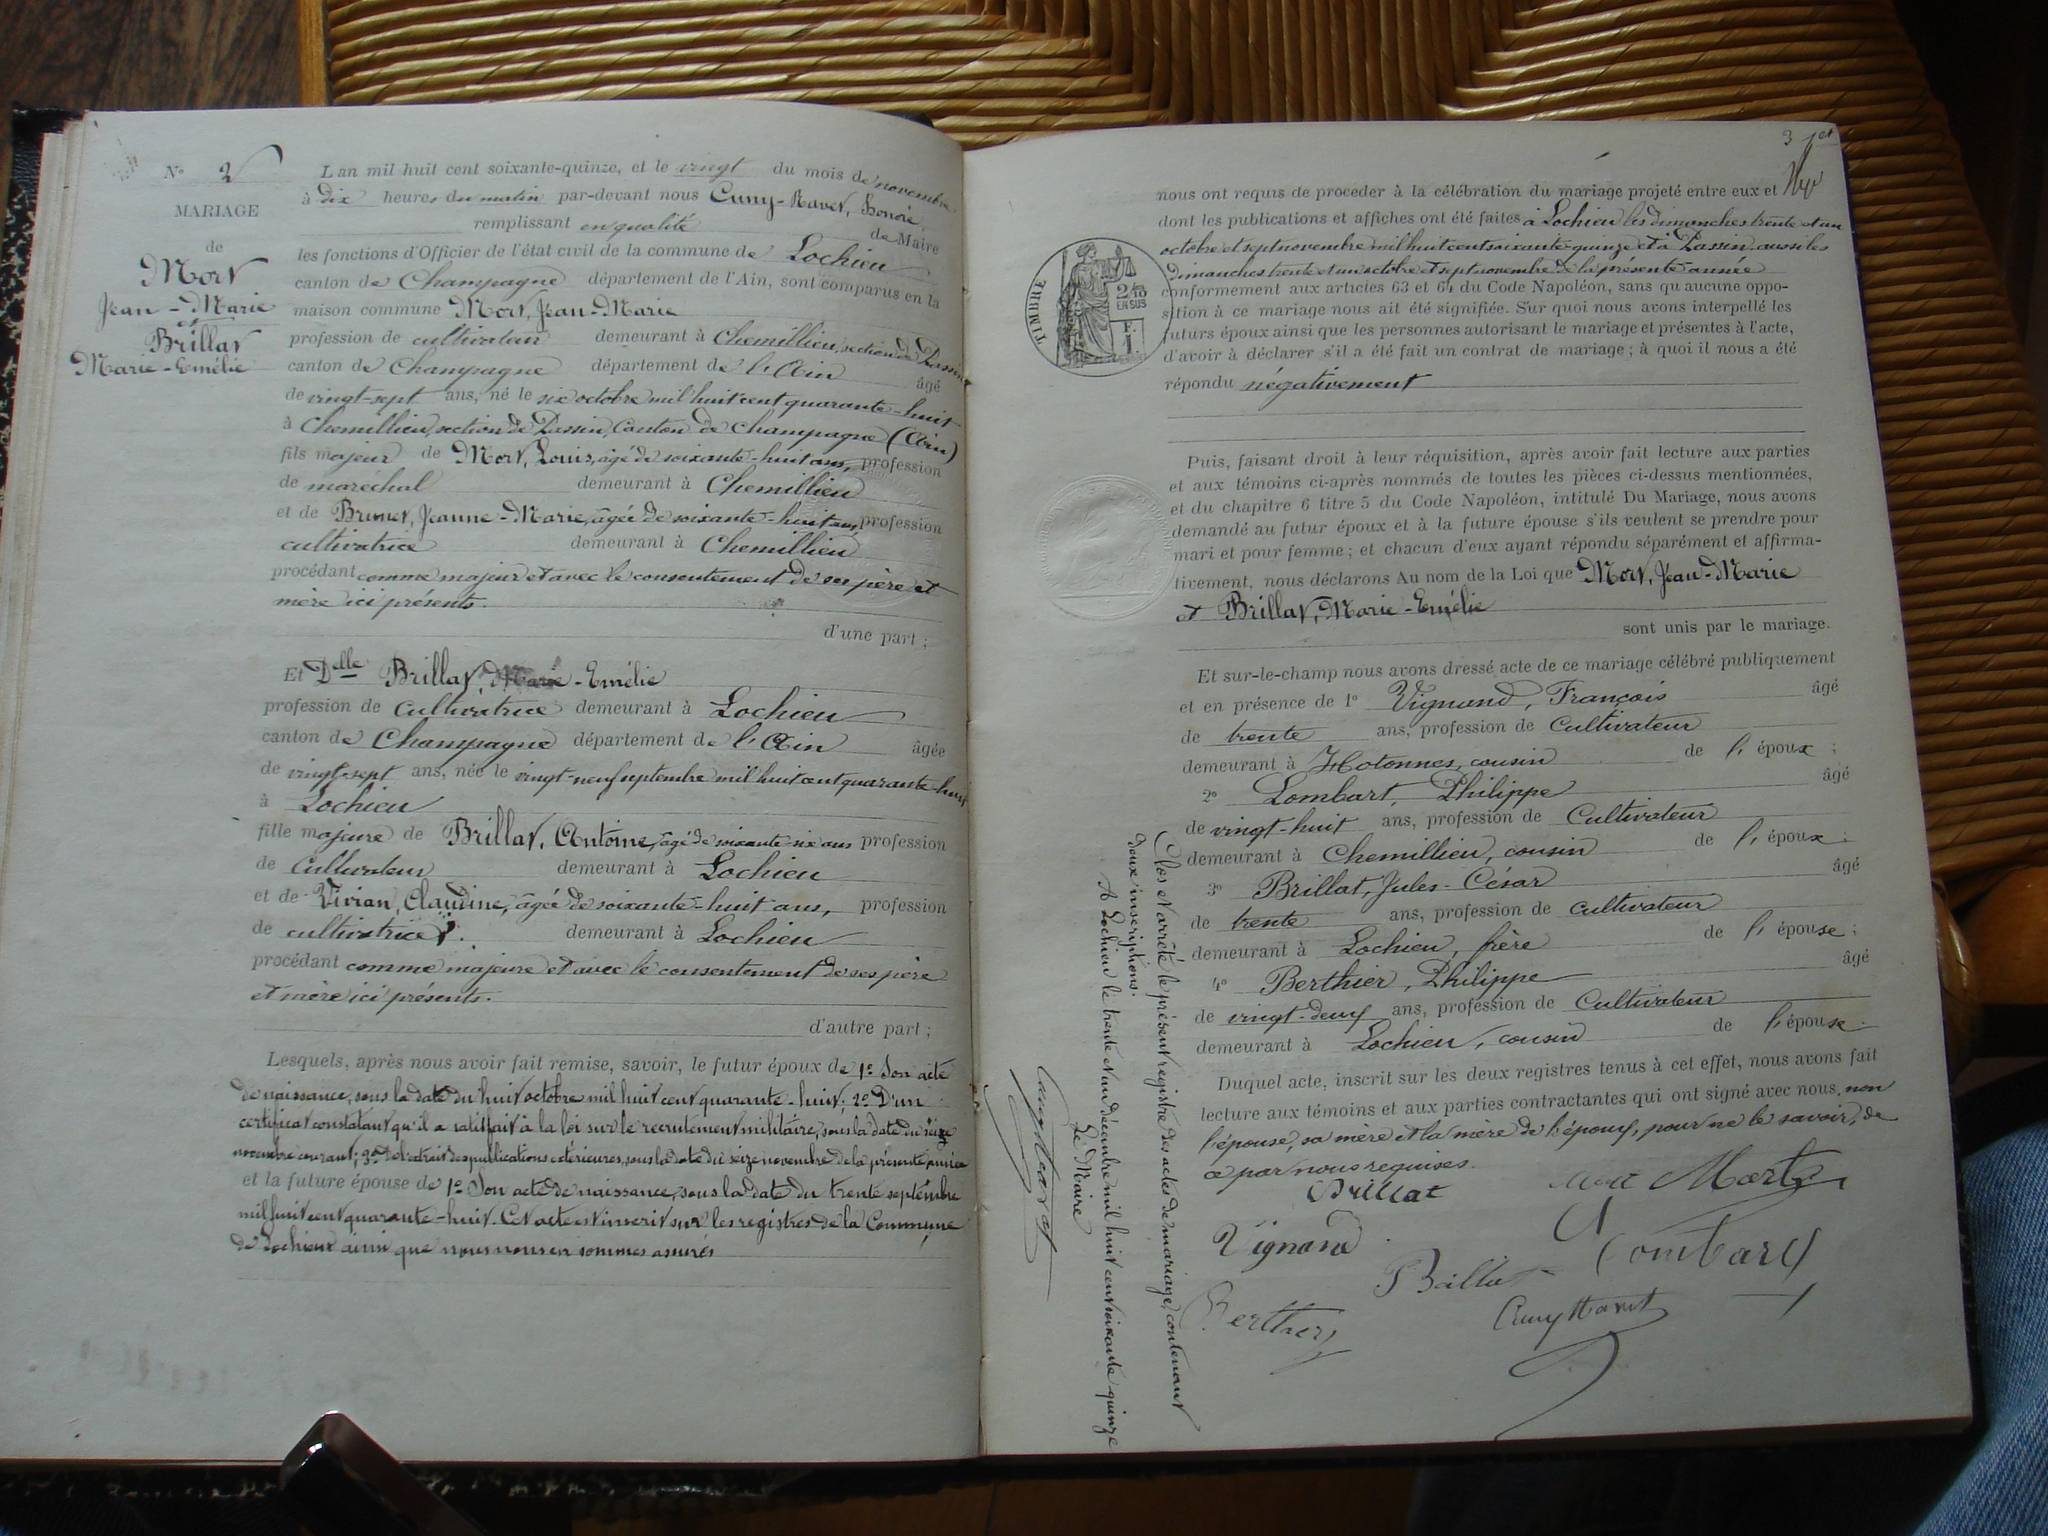 N° 2
MARIAGE
de
Mort
Jean-Marie
et
Brillat
Marie-Emélie
L'an mil huit cent soixante-quinze, et le vingt du mois de novembre
à dix heures du matin par-devant nous Cuny-Ravet, Honoré
remplissant en qualité de Maire
les fonctions d'Officier de l'état civil de la commune de Lochieu
canton de Champagne département de l'Ain, sont comparus en la
maison commune Mort, Jean-Marie
profession de cultivateur demeurant à Chemillieu, section de Passin
canton de Champagne département de l'Ain âgé
de vingt-sept ans, né le six octobre mil huit cent quarante-huit
à Chemillieu, section de Passin, Canton de Champagne (Ain)
fils majeur de Mort, Louis, âgé de soixante-huit ans, profession
de maréchal demeurant à Chemillieu
et de Brunet, Jeanne-Marie, âgée de soixante-huit ans, profession
cultivatrice demeurant à Chemillieu
procédant comme majeur et avec le consentement de ses père et
mère ici présents.
d'une part ;
Et Dlle Brillat, Marie-Emélie
profession de Cultivatrice demeurant à Lochieu
canton de Champagne département de l'Ain âgée
de vingt-sept ans, née le vingt-neuf septembre mil huit cent quarante-huit
à Lochieu
fille majeure de Brillat, Antoine, âgé de soixante six ans profession
de Cultivateur demeurant à Lochieu
et de Vivian, Claudine, âgée de soixante-huit ans, profession
de cultivatrice demeurant à Lochieu
procédant comme majeure et avec le consentement de ses père
et mère ici présents.
d'autre part ;
Lesquels, après nous avoir fait remise, savoir, le futur époux de 1° Son acte
de naissance, sous la date du huit octobre mil huit cent quarante-huit ; 2° D'un
certificat constatant qu'il a satisfait à la loi sur le recrutement militaire, sous la date du seize
novembre courant ; 3° des publications extérieures, sous la date du seize novembre de la présente année
et la future épouse de 1° Son acte de naissance, sous la date du trente septembre
mil huit cent quarante-huit. Cet acte est inscrit sur les registres de la Commune
de Lochieu ainsi que nous nous en sommes assurés
3
nous ont requis de proceder à la célébration du mariage projeté entre eux et
dont les publications et affiches ont été faites à Lochieu les dimanches trente et un
octobre et sept novembre mil huit cent soixante-quinze et à Passin aussi les
dimanches trente et un octobre et sept novembre de la présente année
conformement aux articles 63 et 64 du Code Napoléon, sans qu'aucune oppo-
sition à ce mariage nous ait été signifiée. Sur quoi nous avons interpellé les
futurs époux ainsi que les personnes autorisant le mariage et présentes à l'acte,
d'avoir à déclarer s'il a été fait un contrat de mariage ; à quoi il nous a été
répondu négativement
TIMBRE
2/10
EN SUS
F.
1
Puis, faisant droit à leur réquisition, après avoir fait lecture aux parties
et aux témoins ci-après nommés de toutes les pièces ci-dessus mentionnées,
et du chapitre 6 titre 5 du Code Napoléon, intitulé Du Mariage, nous avons
demandé au futur époux et à la future épouse s'ils veulent se prendre pour
mari et pour femme ; et chacun d'eux ayant répondu séparément et affirma-
tivement, nous déclarons Au nom de la Loi que Mort, Jean-Marie
et Brillat, Marie-Emélie
sont unis par le mariage.
Et sur-le-champ nous avons dressé acte de ce mariage célébré publiquement
et en présence de 1° Vignand, François âgé
de trente ans, profession de Cultivateur
demeurant à Hotonnes, cousin de l'époux ;
2° Lombart, Philippe âgé
de vingt-huit ans, profession de Cultivateur
demeurant à Chemillieu, cousin de l'époux ;
3° Brillat, Jules-César âgé
de trente ans, profession de Cultivateur
demeurant à Lochieu, frère de l'épouse ;
4° Berthier, Philippe âgé
de vingt-deux ans, profession de Cultivateur
demeurant à Lochieu, cousin de l'épouse.
Duquel acte, inscrit sur les deux registres tenus à cet effet, nous avons fait
lecture aux témoins et aux parties contractantes qui ont signé avec nous, non
l'épouse, sa mère et la mère de l'époux, pour ne le savoir, de
ce par nous requises.
Brillat
Mort
Vignand
Lombard
Brillat
Berthier
Cuny Ravet
Clos et arrêté le présent registre des actes de mariage, contenant
deux inscriptions.
A Lochieu le trente et un décembre mil huit cent soixante quinze
Le Maire
Cuny Ravet